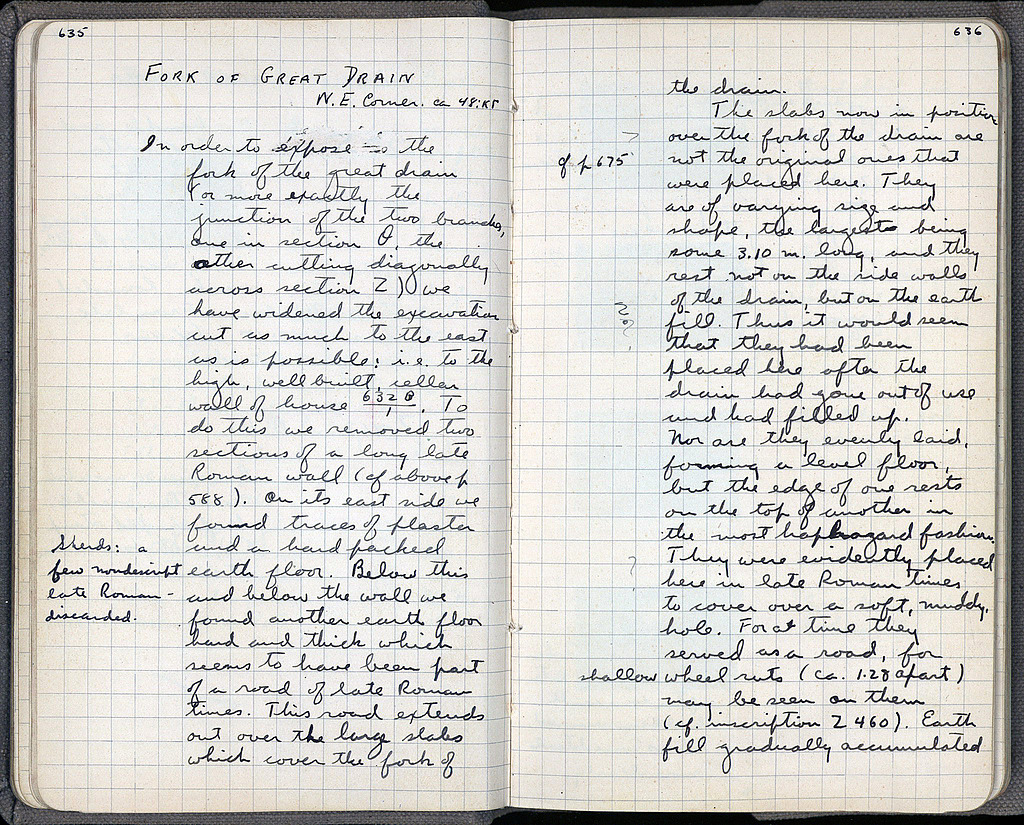 635
FORK OF GREAT DRAIN
N.E. Corner. ca 48:
In order to expose the
fork of the great drain
(or more exactly the
junction of the two branches,
one in section Θ, the
other cutting diagonally
across section Z) we
have widened the excavation
cut as much to the east
as is possible; i.e. to the
high, well built, cellar
wall of house 632 Θ/1. To
do this we removed two
sections of a long late
Roman wall (cf above p
588). On its east side we
found traces of plaster
and a hard packed
earth floor. Below this
and below the wall we
found another earth floor
hard and thick which
seems to have been part
of a road of late Roman
times. This road extends
out over the large slabs
which cover the fork of
Sherds: a
few nondescript
late Roman –
discarded.
636
the drain.
The slabs now in position
over the fork of the drain are
cf p 675
not the original ones that
were placed here. They
are of varying size and
shape, the largest being
some 3.10 m. long, and they
rest not on the side walls
of the drain, but on the earth
fill. Thus it would seem
that they had been
placed here after the
drain had gone out of use
and had filled up.
Nor are they evenly laid,
forming a level floor,
but the edge of one rests
on the top of another in
the most haphazard fashion.
They were evidently placed
here in late Roman times
to cover over a soft, muddy,
hole. For a time they
served as a road, for
shallow wheel ruts (ca. 1.28 apart)
may be seen on them
(cf. inscription Z 460). Earth
fill gradually accumulated